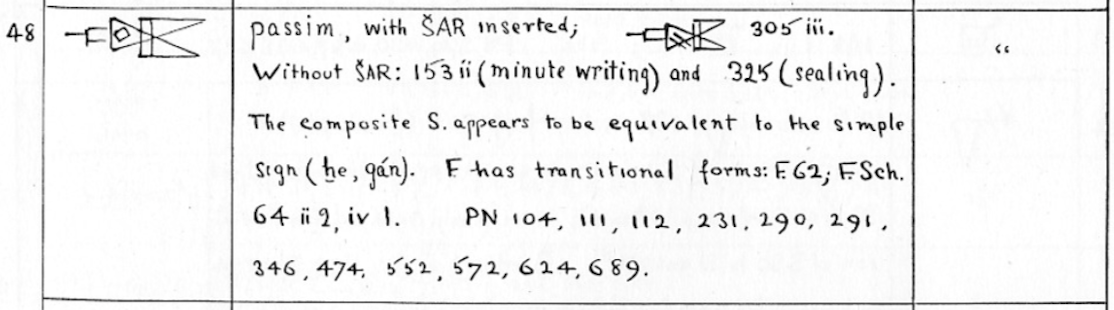 48 passim, with ŠAR inserted; 305 iii. “
Without ŠAR: 153 ii (minute writing) and 325 (sealing).
The composite S. appears to be equivalent to the simple
sign (ḫe, gán). F has transitional forms: F.62; F.Sch.
64 ii 2, iv 1. PN 104, 111, 112, 231, 290, 291,
346, 474, 552, 572, 624, 689.